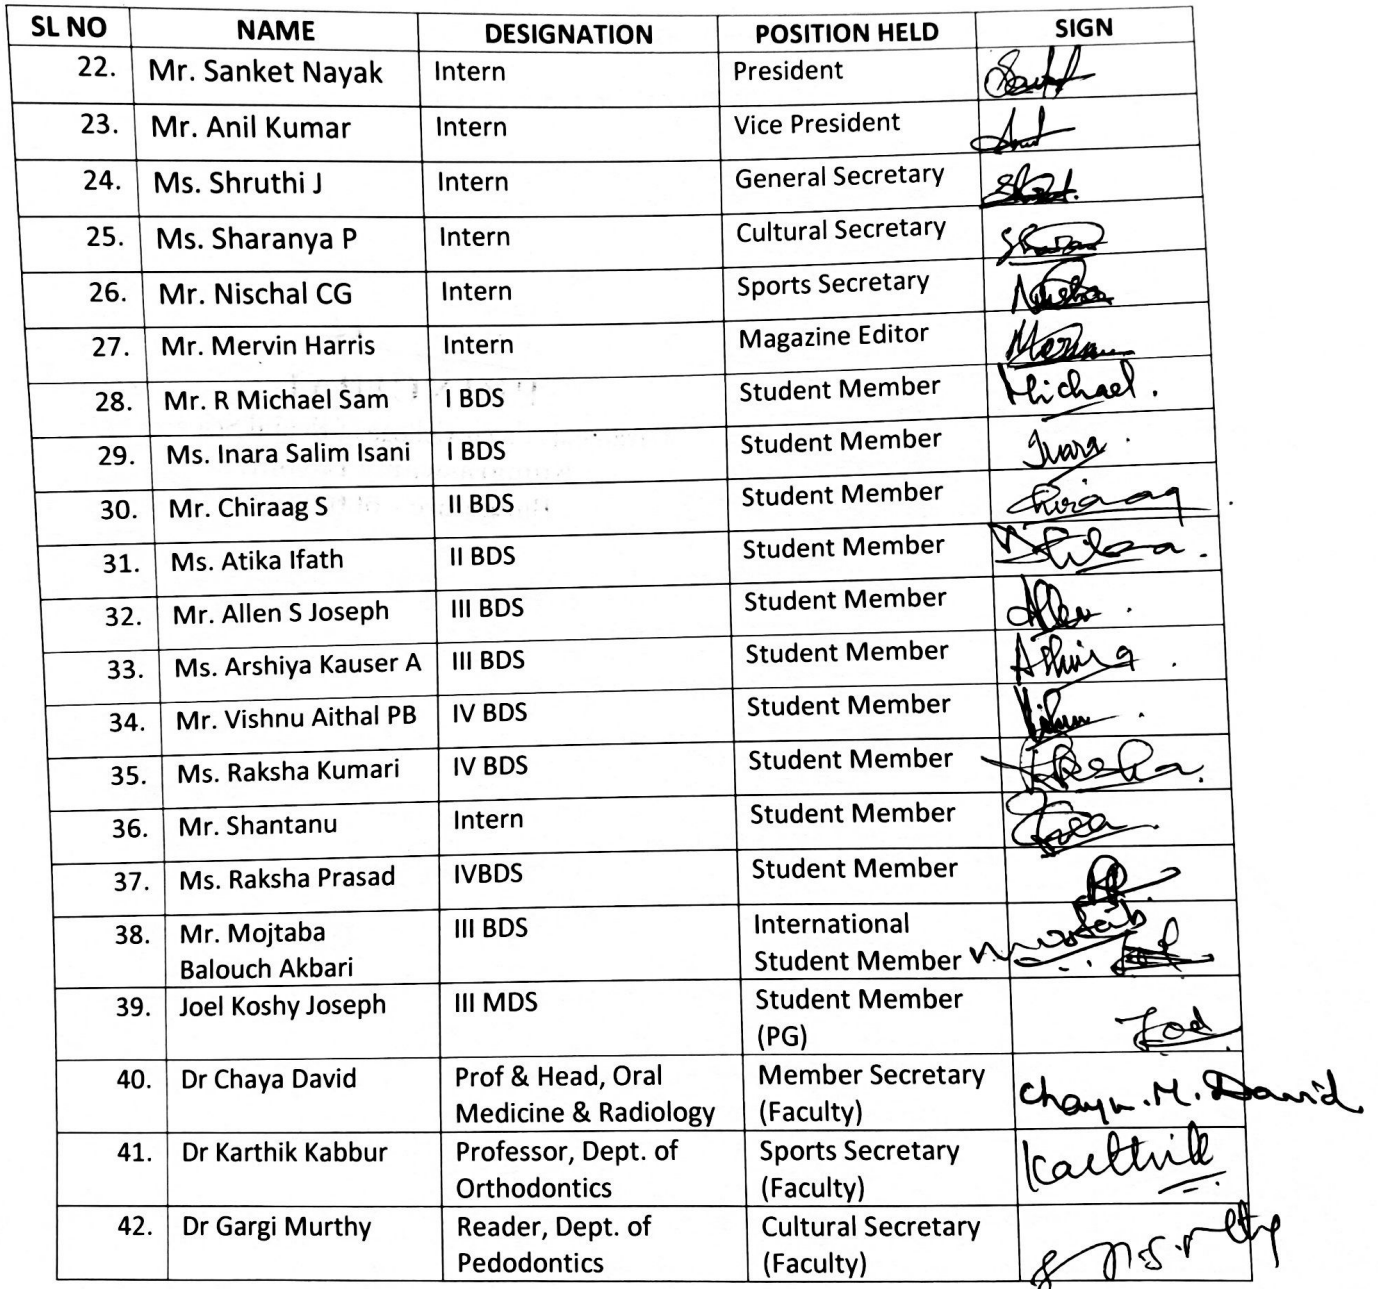 SL NO NAME DESIGNATION POSITION HELD SIGN
22. Mr. Sanket Nayak Intern President
23. Mr. Anil Kumar Intern Vice President
24. Ms. Shruthi J Intern General Secretary
25. Ms. Sharanya P Intern Cultural Secretary
26. Mr. Nischal CG Intern Sports Secretary
27. Mr. Mervin Harris Intern Magazine Editor
28. Mr. R Michael Sam I BDS Student Member Michael.
29. Ms. Inara Salim Isani I BDS Student Member Inara
30. Mr. Chiraag S II BDS Student Member Chiraag
31. Ms. Atika Ifath II BDS Student Member
32. Mr. Allen S Joseph III BDS Student Member Allen
33. Ms. Arshiya Kauser A III BDS Student Member
34. Mr. Vishnu Aithal PB IV BDS Student Member
35. Ms. Raksha Kumari IV BDS Student Member
36. Mr. Shantanu Intern Student Member
37. Ms. Raksha Prasad IVBDS Student Member
38. Mr. Mojtaba III BDS International
Balouch Akbari Student Member
39. Joel Koshy Joseph III MDS Student Member
(PG)
40. Dr Chaya David Prof & Head, Oral Member Secretary Chaya.M.David
Medicine & Radiology (Faculty)
41. Dr Karthik Kabbur Professor, Dept. of Sports Secretary Karthik
Orthodontics (Faculty)
42. Dr Gargi Murthy Reader, Dept. of Cultural Secretary
Pedodontics (Faculty)